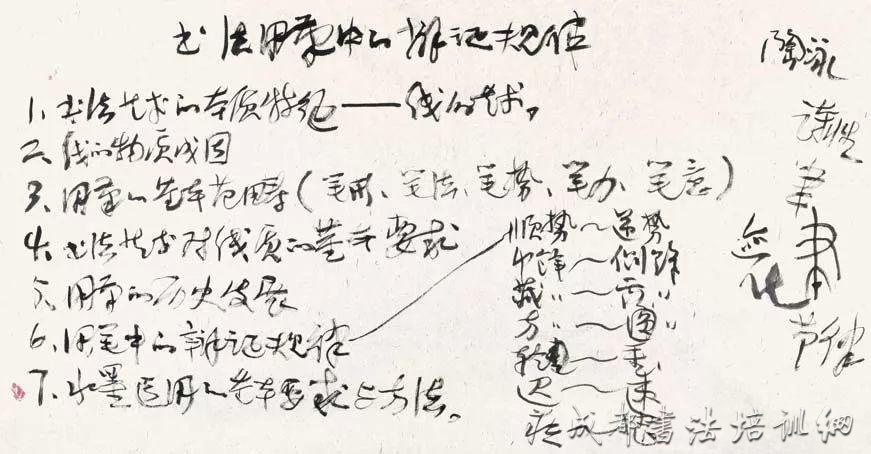 书法用笔中的辩证规律
1、书法艺术的本质特征——线的艺术。
2、线的物质成因
3、用笔的基本范畴（笔形、笔法、笔势、笔力、笔意）
4、书法艺术对线质的基本要求
5、用笔的历史发展
6、用笔中的辩证规律
7、水墨运用的基本要求与方法。
顺势～逆势
中锋～侧锋
藏〃～露〃
方〃～圆〃
轻～重
迟～速
陶冰
笔
变化
节律
成都书法培训网